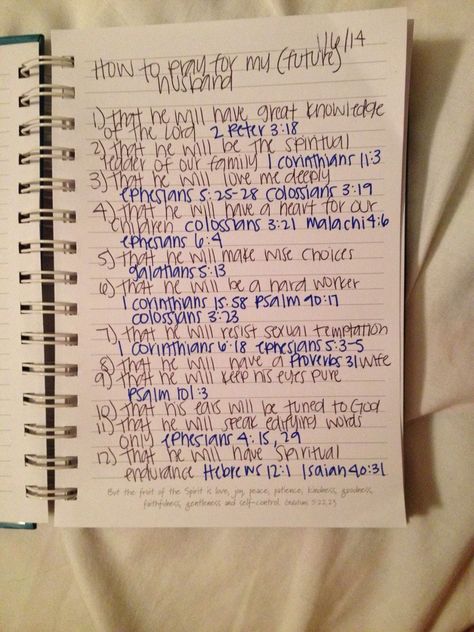 1/6/14
How to pray for my (future)
husband
1) that he will have great knowledge
of the Lord 2 Peter 3:18
2) that he will be the spiritual
leader of our family 1 corinthians 11:3
3) that he will love me deeply
ephesians 5:25-28 colossians 3:19
4) that he will have a heart for our
children colossians 3:21 malachi 4:6
ephesians 6:4
5) that he will make wise choices
galatians 5:13
6) that he will be a hard worker
1 corinthians 15:58 psalm 90:17
colossians 3:23
7) that he will resist sexual temptation
1 corinthians 6:18 ephesians 5:3-5
8) that he will have a Proverbs 31 wife
9) that he will keep his eyes pure
psalm 101:3
10) that his ears will be tuned to God
11) that he will speak edifying words
only ephesians 4:15, 29
12) that he will have spiritual
endurance Hebrews 12:1 Isaiah 40:31
But the fruit of the Spirit is love, joy, peace, patience, kindness, goodness,
faithfulness, gentleness and self-control. Galatians 5:22,23